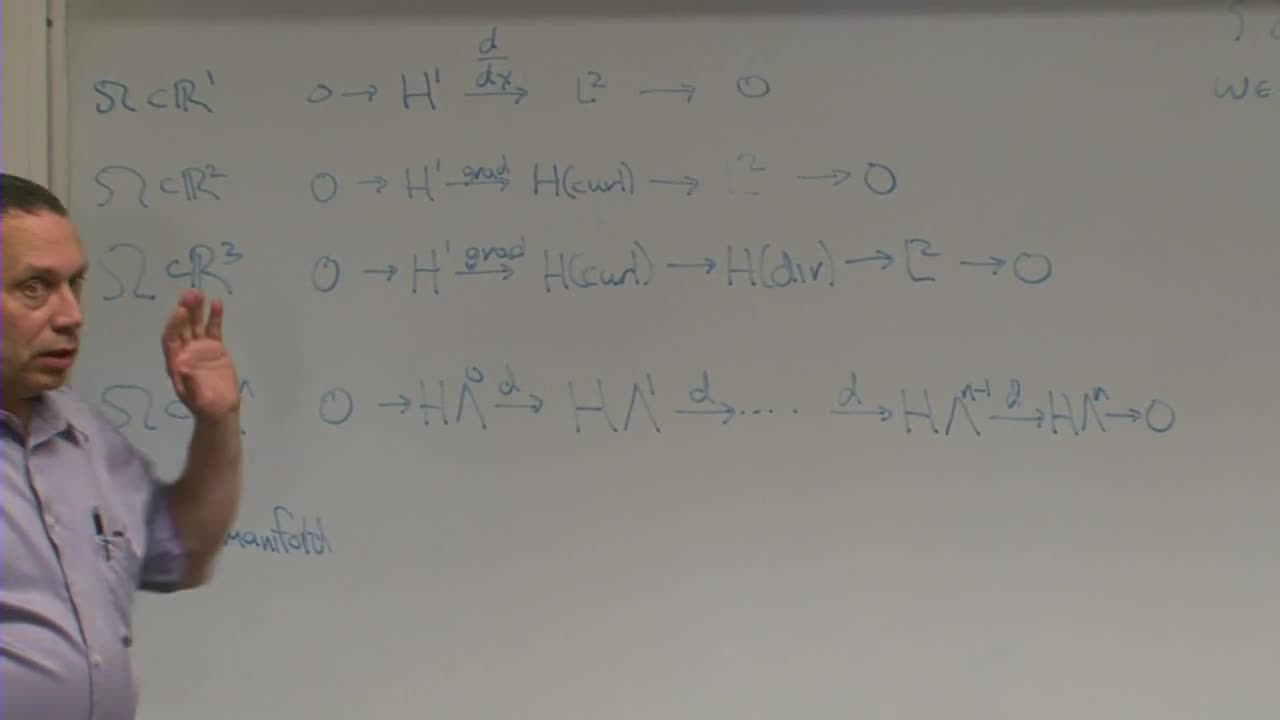 WE
Ω ⊂ ℝ¹ 0 → H¹ d/dx → L² → 0
Ω ⊂ ℝ² 0 → H¹ grad → H(curl) → L² → 0
Ω ⊂ ℝ³ 0 → H¹ grad → H(curl) → H(div) → L² → 0
Ω ⊂ 0 → HΛ⁰ d → HΛ¹ d → .... d → HΛⁿ⁻¹ d → HΛⁿ → 0
manifold